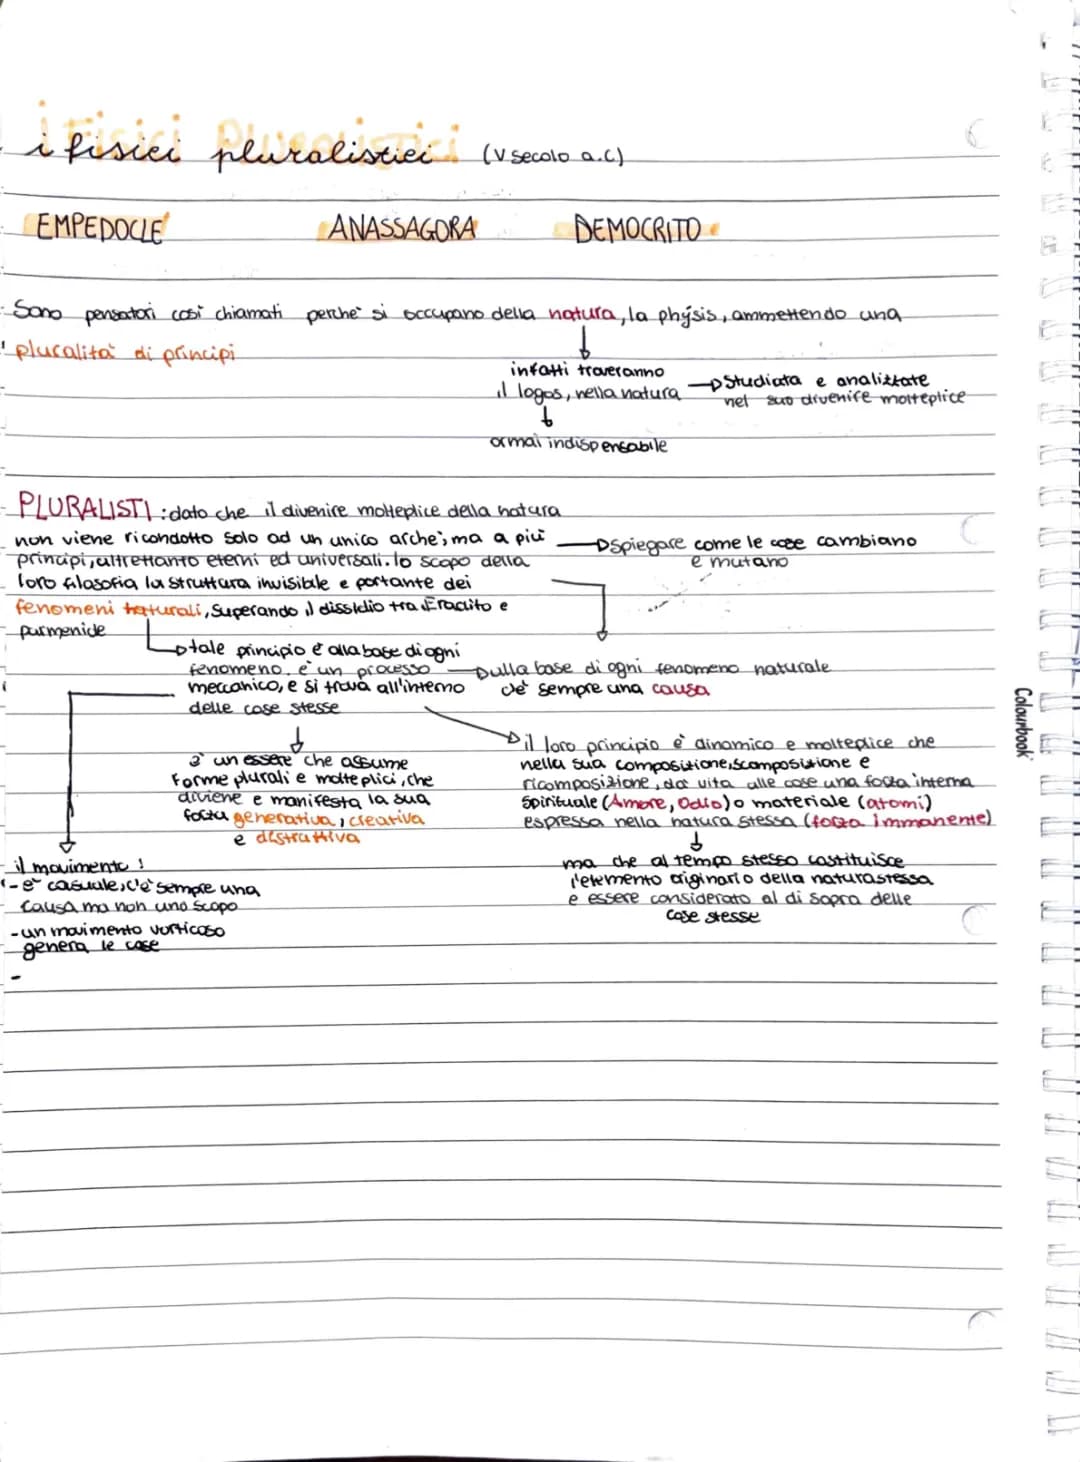 i fisici pluralistici (V secolo a.C)
EMPEDOCLE ANASSAGORA DEMOCRITO
Sono pensatori così chiamati perché si occupano della natura, la phýsis, ammettendo una
pluralità di principi
infatti troveranno
il logos, nella natura
studiata e analizzate
nel suo divenire molteplice
ormai indispensabile
PLURALISTI : dato che il divenire molteplice della natura
non viene ricondotto solo ad un unico arché; ma a più
principi, altrettanto eterni ed universali. lo scopo della
loro filosofia la struttura invisibile e portante dei
fenomeni naturali, superando il dissidio tra Eraclito e
parmenide
spiegare come le cose cambiano
e mutano
tale principio è alla base di ogni
fenomeno, è un processo
meccanico, e si trova all'interno
delle cose stesse
ulla base di ogni fenomeno naturale
c'è sempre una causa
è un essere che assume
forme plurali e molteplici, che
diviene e manifesta la sua
forza generativa, creativa
e distruttiva
il loro principio è dinamico e molteplice che
nella sua composizione, scomposizione e
ricomposizione, da' vita alle cose una forza interna
spirituale (Amore, Odio) o materiale (atomi)
espressa nella natura stessa (forza immanente)
ma che al tempo stesso costituisce
l'elemento originario della natura stessa
e essere considerato al di sopra delle
cose stesse
il movimento !
- è casuale, c'è sempre una
causa ma non uno scopo
- un movimento vorticoso
genera le cose
-
Colourbook